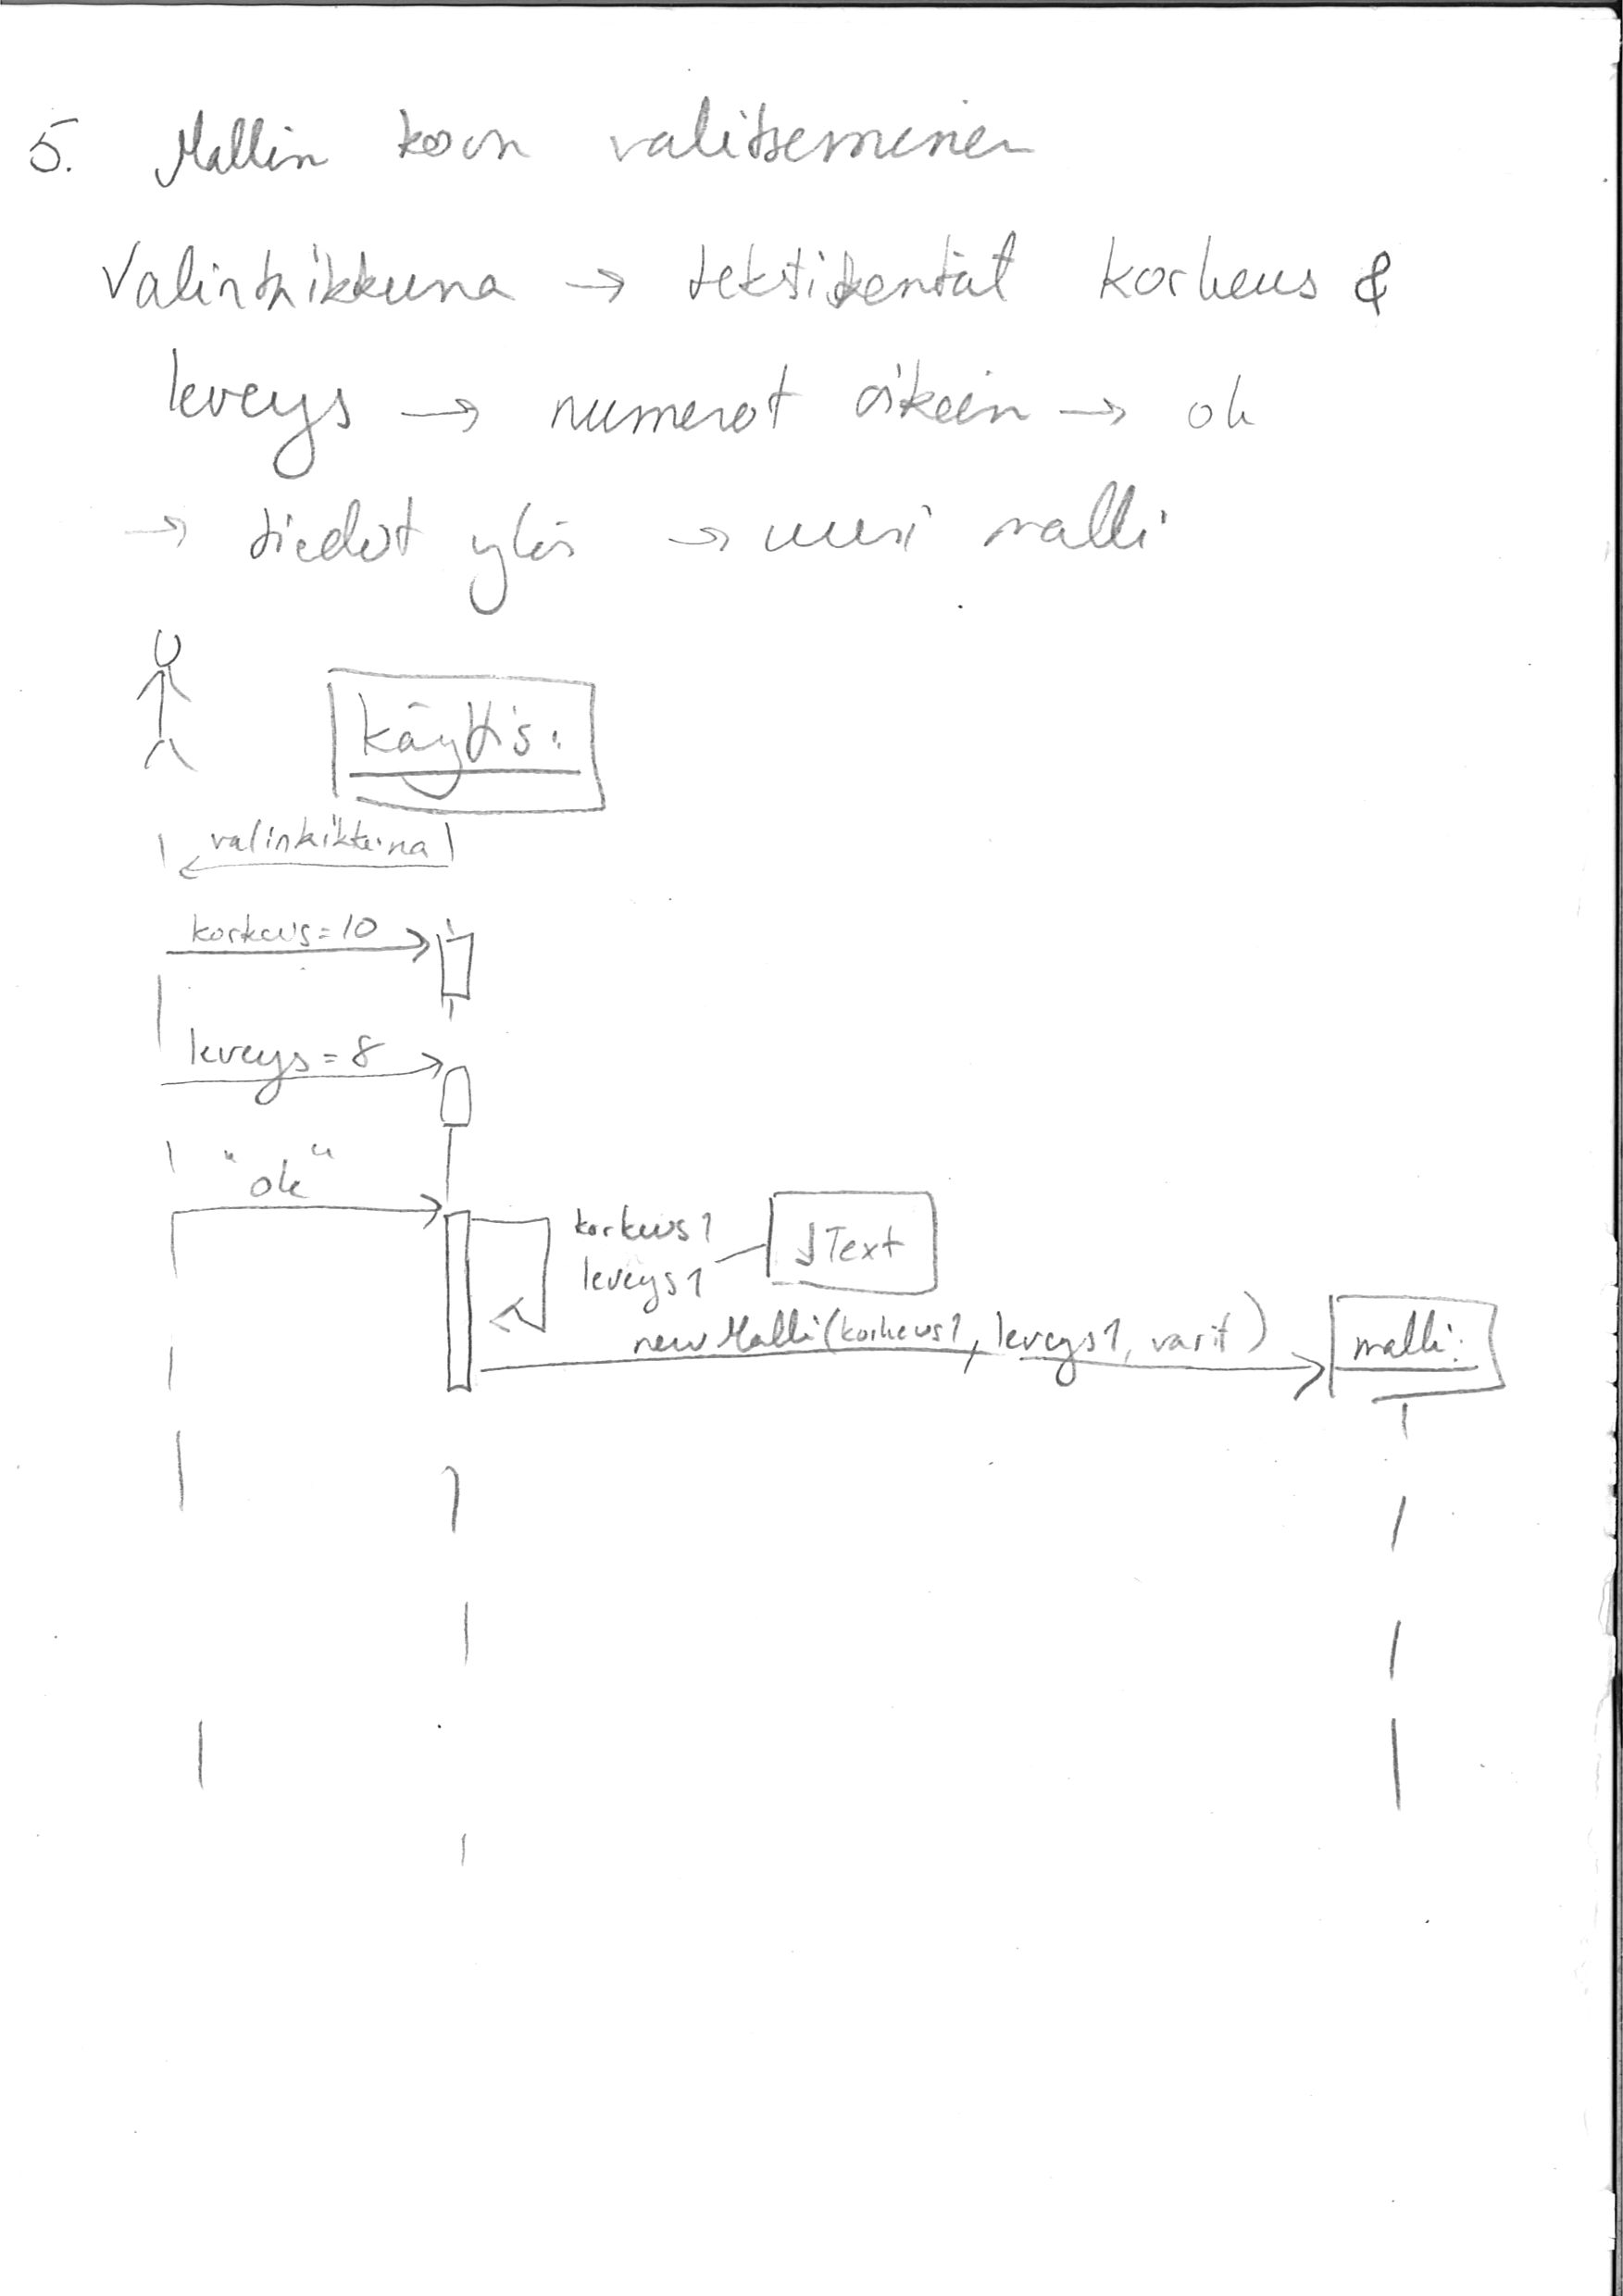 5. Mallin koon valitseminen
Valintaikkuna → tekstikentät korkeus &
leveys → numerot oikein → ok
→ tiedot ylös → uusi malli
käyttis:
valintaikkuna
korkeus=10
leveys=8
"ok"
korkeus1
leveys1
JText
new Malli(korkeus1, leveys1, varit)
malli: